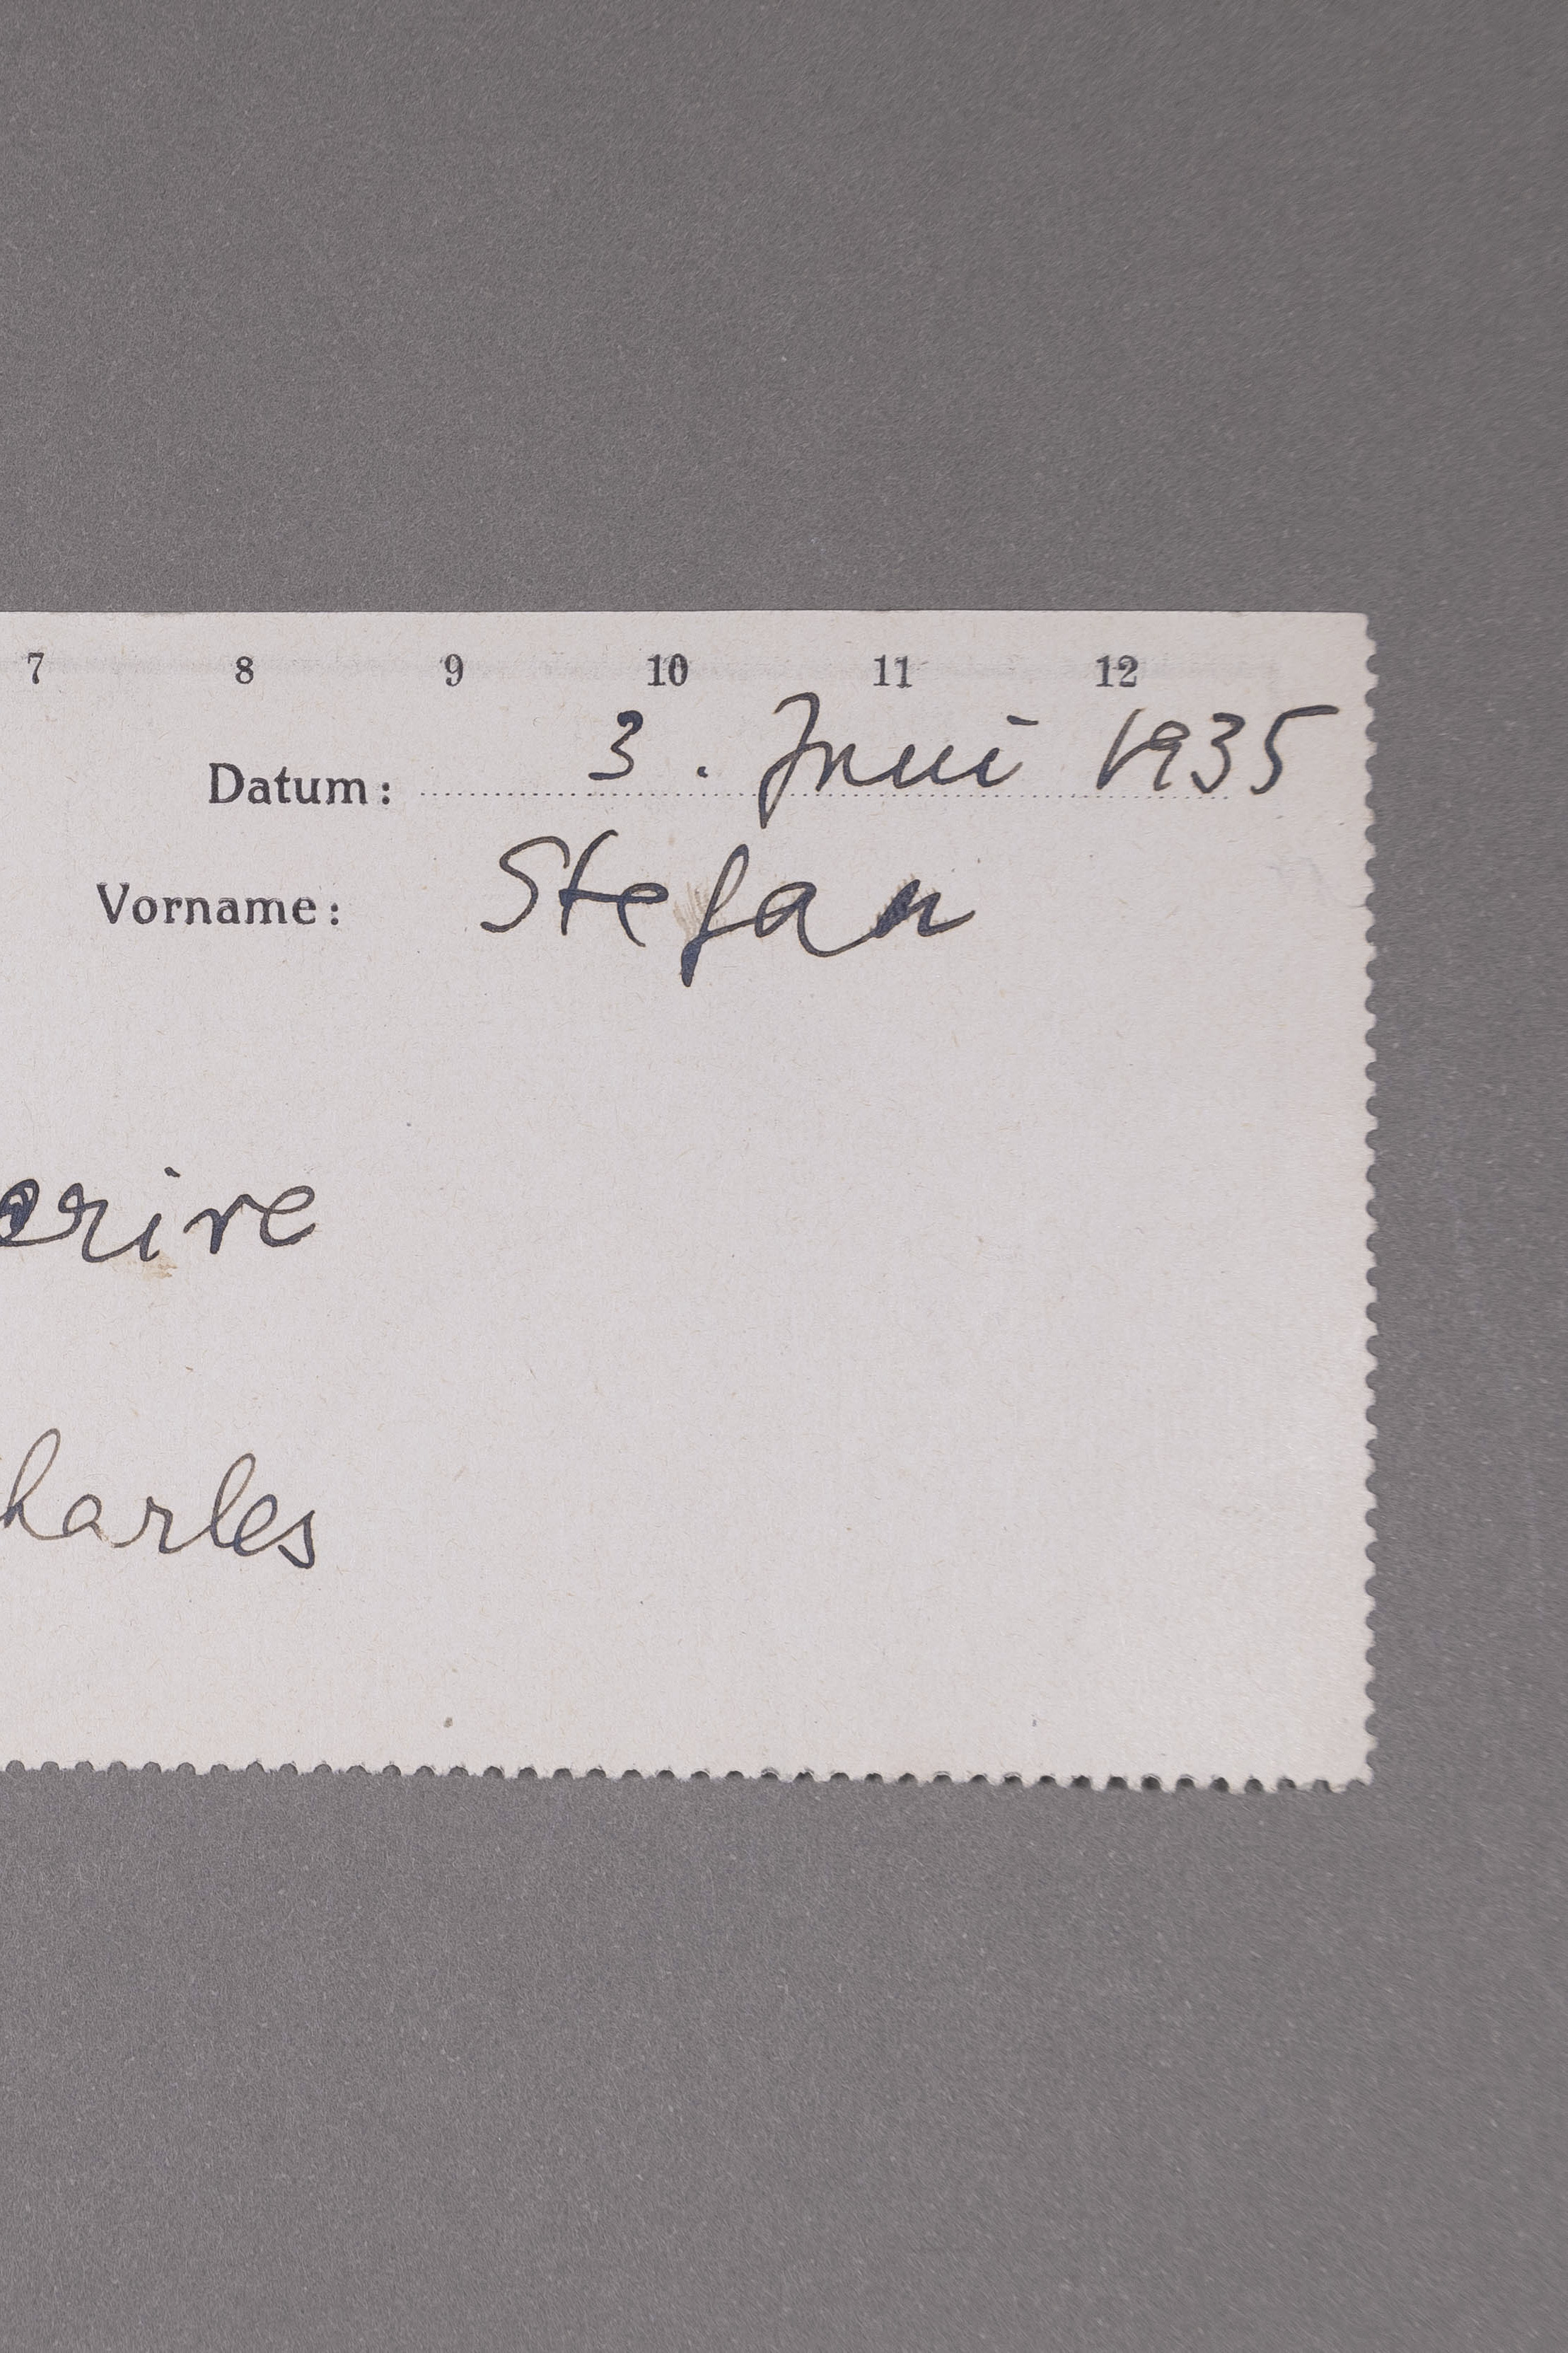 7 8 9 10 11 12
Datum: 3. Juni 1935
Vorname: Stefan
crire
harles